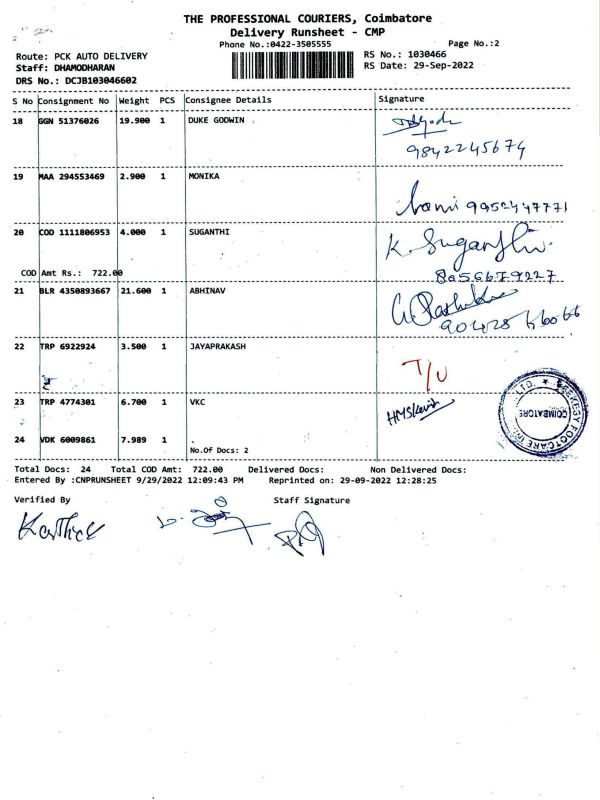 THE PROFESSIONAL COURIERS, Coimbatore
Delivery Runsheet - CMP
Phone No.:0422-3505555 Page No.:2
Route: PCK AUTO DELIVERY RS No.: 1030466
Staff: DHAMODHARAN RS Date: 29-Sep-2022
DRS No.: DCJB103046602
S No Consignment No Weight PCS Consignee Details Signature
18 GGN 51376026 19.900 1 DUKE GODWIN
9842245674
19 MAA 294553469 2.900 1 MONIKA
9952447771
20 COD 1111806953 4.000 1 SUGANTHI K. Suganthi
COD Amt Rs.: 722.00 8056679227
21 BLR 4350893667 21.600 1 ABHINAV
22 TRP 6922924 3.500 1 JAYAPRAKASH T/U
23 TRP 4774301 6.700 1 VKC
24 VDK 6009861 7.989 1 .
No.Of Docs: 2
COIMBATORE
Total Docs: 24 Total COD Amt: 722.00 Delivered Docs: Non Delivered Docs:
Entered By :CNPRUNSHEET 9/29/2022 12:09:43 PM Reprinted on: 29-09-2022 12:28:25
Verified By Staff Signature
Karthick